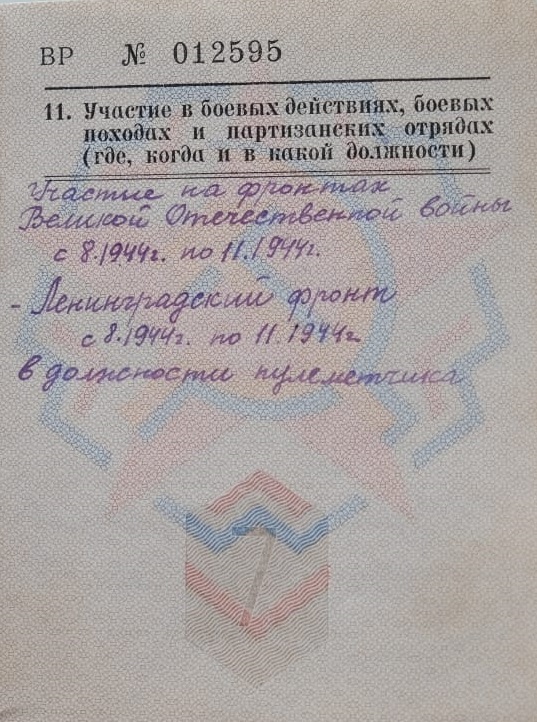 ВР № 012595
11. Участие в боевых действиях, боевых
походах и партизанских отрядах
(где, когда и в какой должности)
Участие на фронтах
Великой Отечественной войны
с 8.1944г. по 11.1944г.
- Ленинградский фронт
с 8.1944г. по 11.1944г.
в должности пулеметчика
7